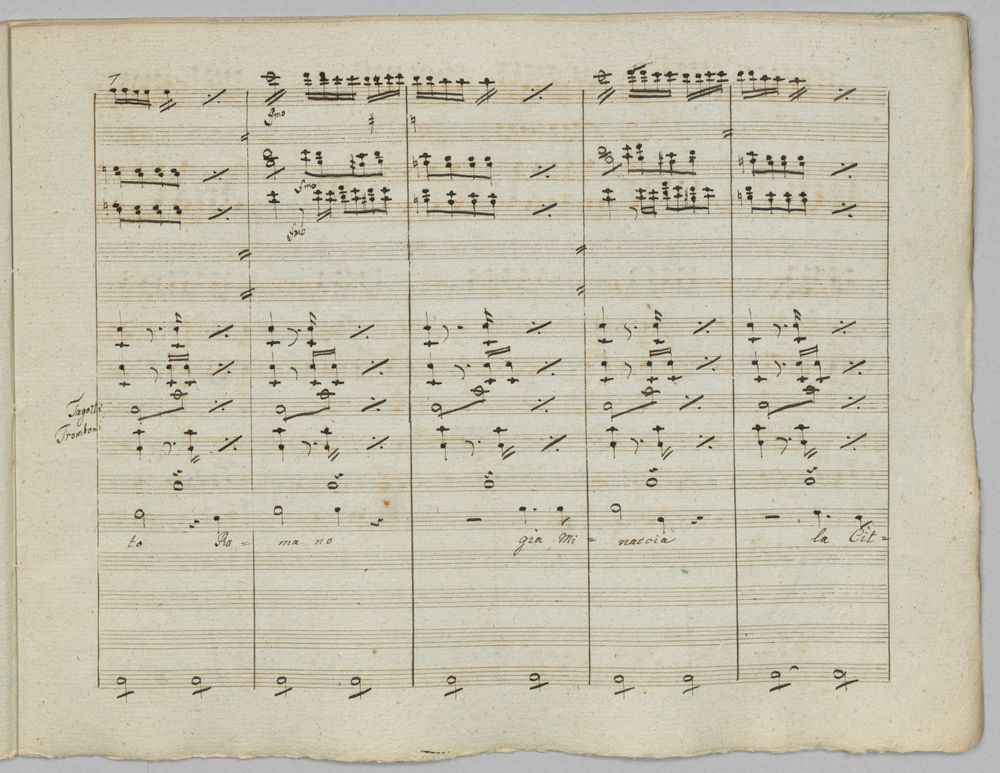 7
Fmo
Fmo
Fmo
Fagotti
Tromboni
to Ro= ma no già Mi= naccia la Cit=